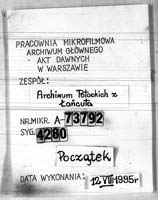 PRACOWNIA MIKROFILMOWA
ARCHIWUM GŁÓWNEGO
AKT DAWNYCH
W WARSZAWIE
ZESPÓŁ:
Archiwum Potockich z
Łańcuta
NR.MIKR. A-73792
SYG. 4280
Początek
DATA WYKONANIA: 12 VII 1995 r